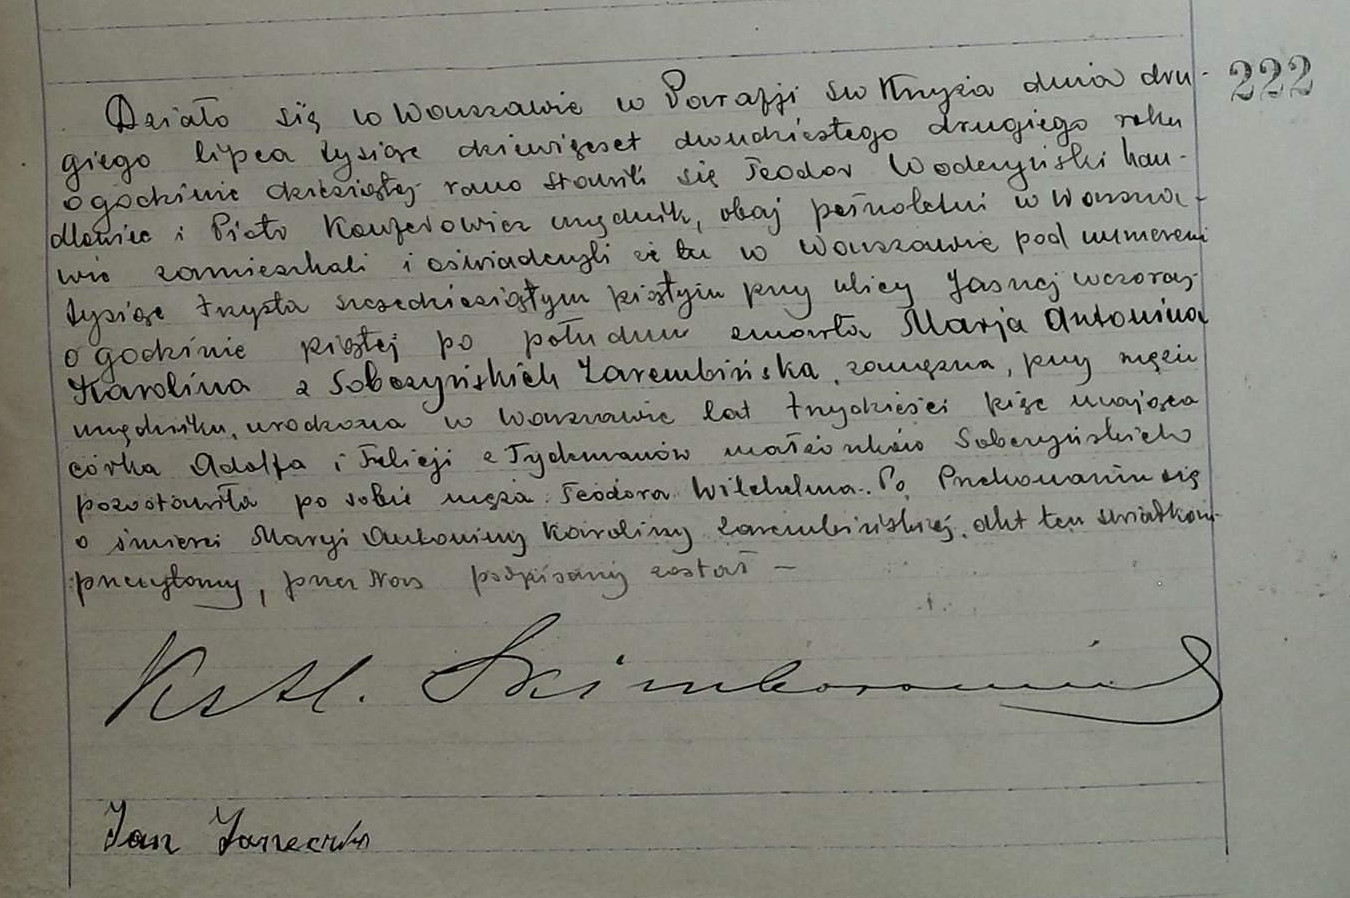 Działo się w Warszawie w Parafji św Krzyża dnia dru- 222
giego lipca tysiąc dziewięćset dwudziestego drugiego roku
o godzinie dziesiątej rano stawili się Teodor Wodczyński han-
dlowiec i Piotr urzędnik, obaj pełnoletni w Warsza-
wie zamieszkali i oświadczyli że tu w Warszawie pod numerem
tysiąc trzysta sześćdziesiątym piątym przy ulicy Jasnej wczoraj
o godzinie piątej po południu zmarła Marja Antonina
Karolina z Sobczyńskich Zarembińska, zamężna, przy mężu
urzędniku, urodzona w Warszawie lat trzydzieści pięć mająca
córka Adolfa i Felicji z Tydemanów małżonków Sobczyńskich
pozostawiła po sobie męża Teodora Wilchelma. Po Przekonaniu się
o śmierci Maryi Antoniny Karoliny Zarembińskiej, akt ten świadkom
przeczytany, przez Nas podpisany został —
Jan